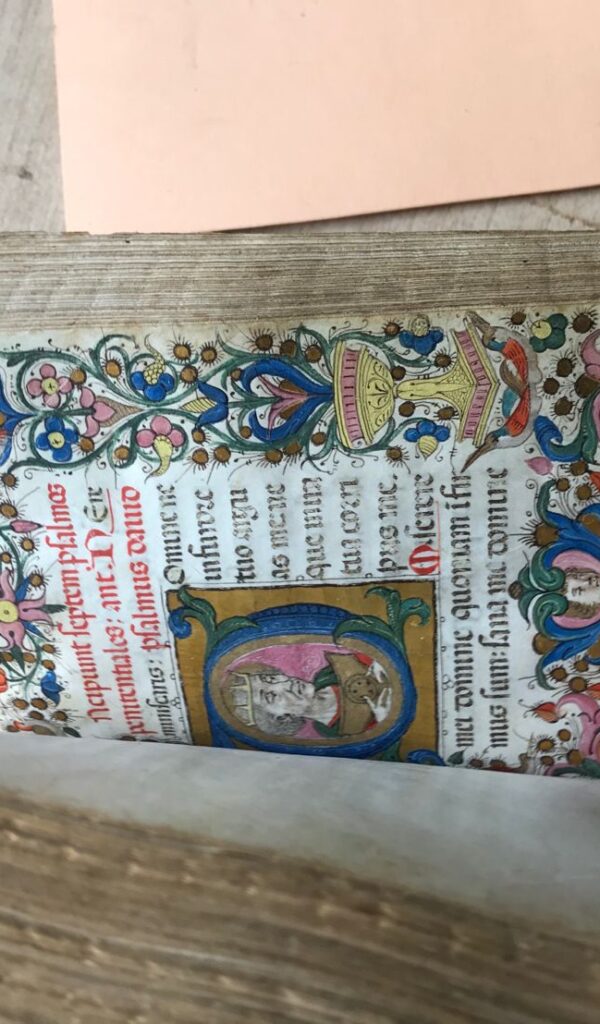 Ncipiunt septem psalmos
penitentiales: ant. Ne re
miniscaris: psalmus david
Omine ne
infurore
tuo argu
as me ne
que in ira
tua corri
pias me.
Miserere
mei domine quoniam ifir
mus sum: sana me domine